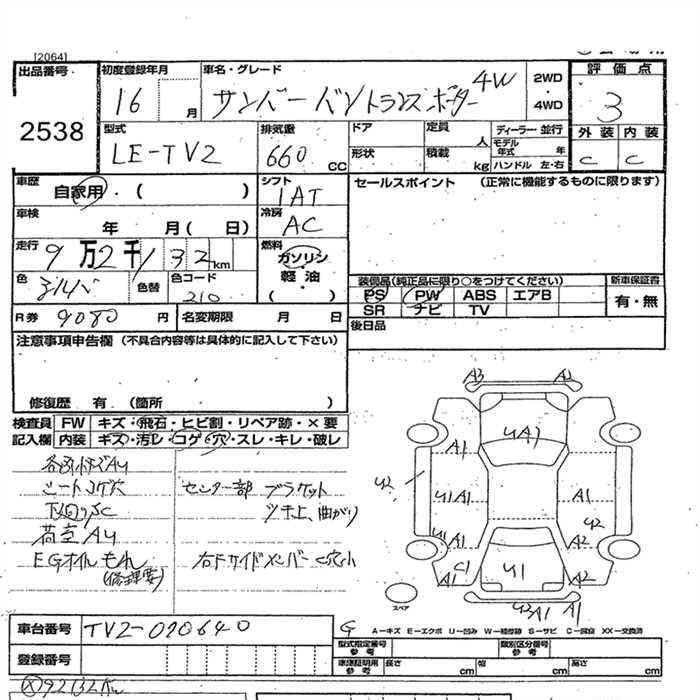 [2064]
出品番号 初度登録年月 車名・グレード 2WD 評価点
2538 16 月 サンバーバントランスポーター 4W ・4WD 3
型式 排気量 ドア 定員 人 ディーラー・並行 外装 内装
LE-TV2 660 CC 形状 積載 kg モデル年式 年 ハンドル 左・右 C C
車歴 自家用・( ) シフト 1AT セールスポイント (正常に機能するものに限ります)
車検 年 月( 日) 冷房 AC
走行 9万2千132km 燃料 ガソリン
色 シルバ 色替 色コード 210 軽油・( )
装備品(純正品に限り○をつけてください) 新車保証書
PS PW ABS エアB 有・無
SR ナビ TV
R券 9080 円 名変期限 月 日 後日品
注意事項申告欄(不具合内容等は具体的に記入して下さい)
修復歴 有(箇所 )
検査員 FW キズ・飛石・ヒビ割・リペア跡・×要
記入欄 内装 キズ・汚レ・コゲ・穴・スレ・キレ・破レ
シートコゲ穴 センター部 ブラケット
下回りSC ツキ上、曲がり
荷室AU
EGオイルもれ 右Fサイドメンバー C穴小
(修理要)
A3 A2
UA1
A1
U2 U1 A1 A1
U2
U1 A1 A2
C1 A1 U1 A2
U3 A1 A1
スペア
車台番号 TV2-070640 G A-キズ E-エクボ U-凹み W-補修跡 S-サビ C-腐食 XX-交換済
登録番号 型式指定番号 参考 類別区分番号 参考
車庫証明用 参考 長さ cm 幅 cm 高さ cm
92132Km